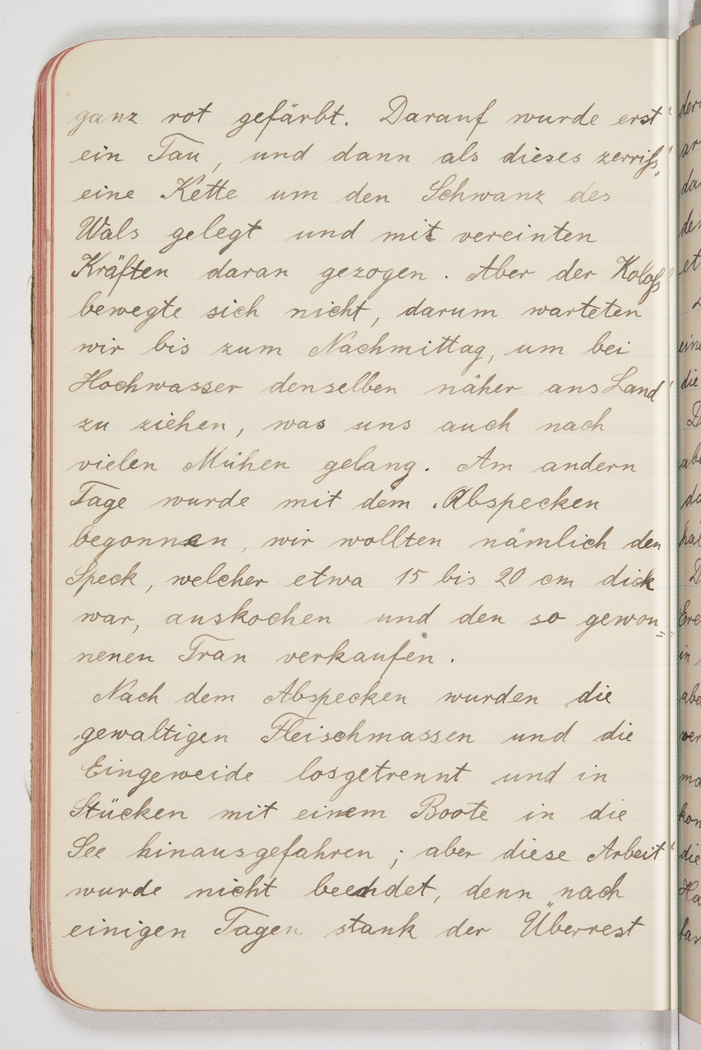 ganz rot gefärbt. Darauf wurde erst
ein Tau, und dann als dieses zerriß,
eine Kette um den Schwanz des
Wals gelegt und mit vereinten
Kräften daran gezogen. Aber der Koloß
bewegte sich nicht, darum warteten
wir bis zum Nachmittag, um bei
Hochwasser denselben näher ans Land
zu ziehen, was uns auch nach
vielen Mühen gelang. Am andern
Tage wurde mit dem Abspecken
begonnen, wir wollten nämlich den
Speck, welcher etwa 15 bis 20 cm dick
war, auskochen und den so gewon=
nenen Tran verkaufen.
Nach dem Abspecken wurden die
gewaltigen Fleischmassen und die
Eingeweide losgetrennt und in
Stücken mit einem Boote in die
See hinausgefahren; aber diese Arbeit
wurde nicht beendet, denn nach
einigen Tagen stank der Überrest